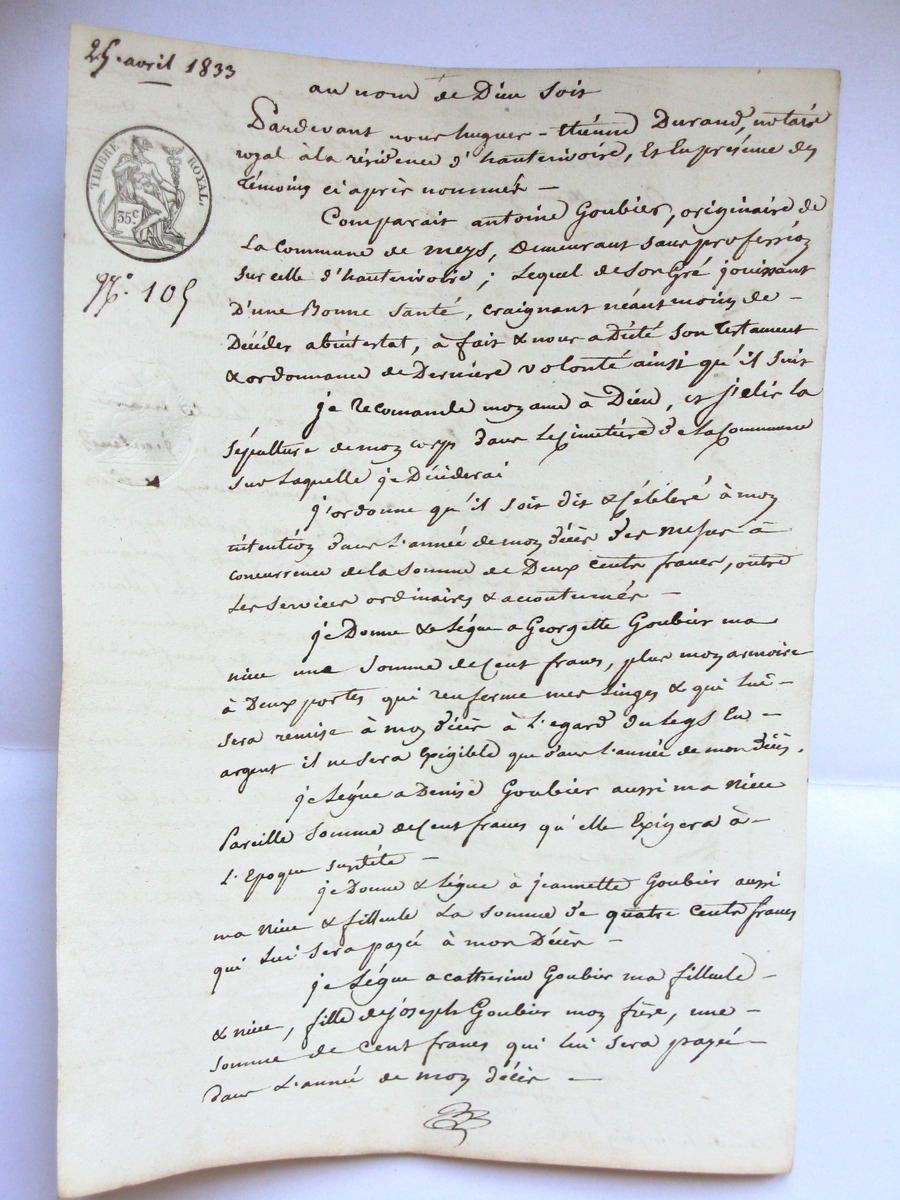 25. avril 1833
au nom de Dieu soit
TIMBRE ROYAL.
35c
No. 105
Pardevant nous hugues-étienne Durand, notaire
royal à la résidence d'hauterivoire, et En présence des
témoins ci après nommés —
Comparait antoine Goubier, originaire de
La Commune de meys, Demeurant sans profession
sur celle d'hauterivoire ; Lequel de son Gré jouissant
D'une Bonne santé, craignant néantmoins de —
Décéder abintestat, à fait & nous a Dicté son testament
& ordonnance de Dernière volonté ainsi qu'il suit
je recomande mon ame à Dieu, et j'elis la
sépulture de mon corps dans Le Cimetière de La Commune
sur Laquelle je Décéderai
j'ordonne qu'il soit dit & Célébré à mon
intention dans L'année de mon décès des messes à
concurrence de la somme de Deux cents francs, outre
Les services ordinaires & accoutumés —
je Donne & Lègue a Georgette Goubier ma
niece une somme de Cent francs, plus mon armoire
à Deux portes qui renferme mes Linges & qui lui —
sera remise à mon décès à L'egard du Legs En —
argent il ne sera Exigible que dans l'année de mon décès.
je Lègue a Denise Goubier aussi ma niece
Pareille somme de Cent francs qu'elle Exigera à —
L'Epoque susdite —
je Donne & Lègue à jeannette Goubier aussi
ma niece & filleule La somme de quatre cents francs
qui lui sera payé à mon Décès —
je Lègue a catherine Goubier ma filleule —
& niece, fille de joseph Goubier mon frère, une —
somme de Cent francs qui lui sera payée —
dans L'année de mon décès —